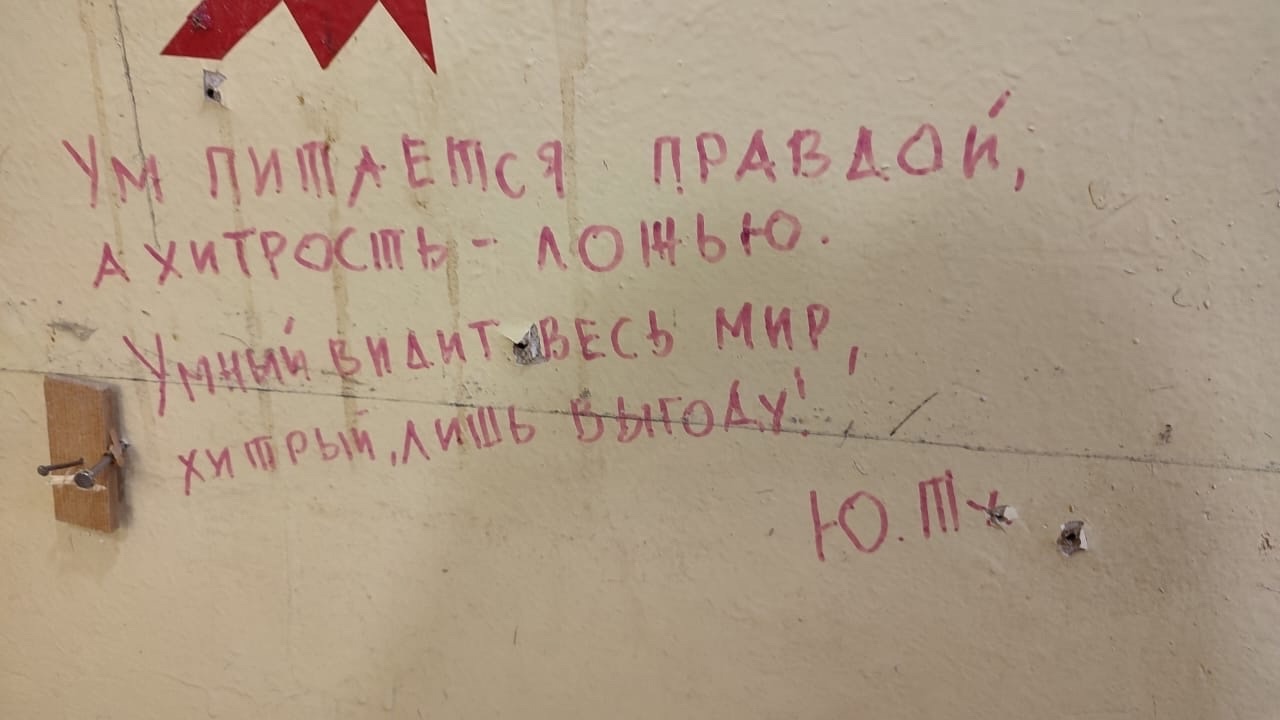 Ум питается правдой,
а хитрость - ложью.
Умный видит весь мир,
хитрый, лишь выгоду!
Ю. Т